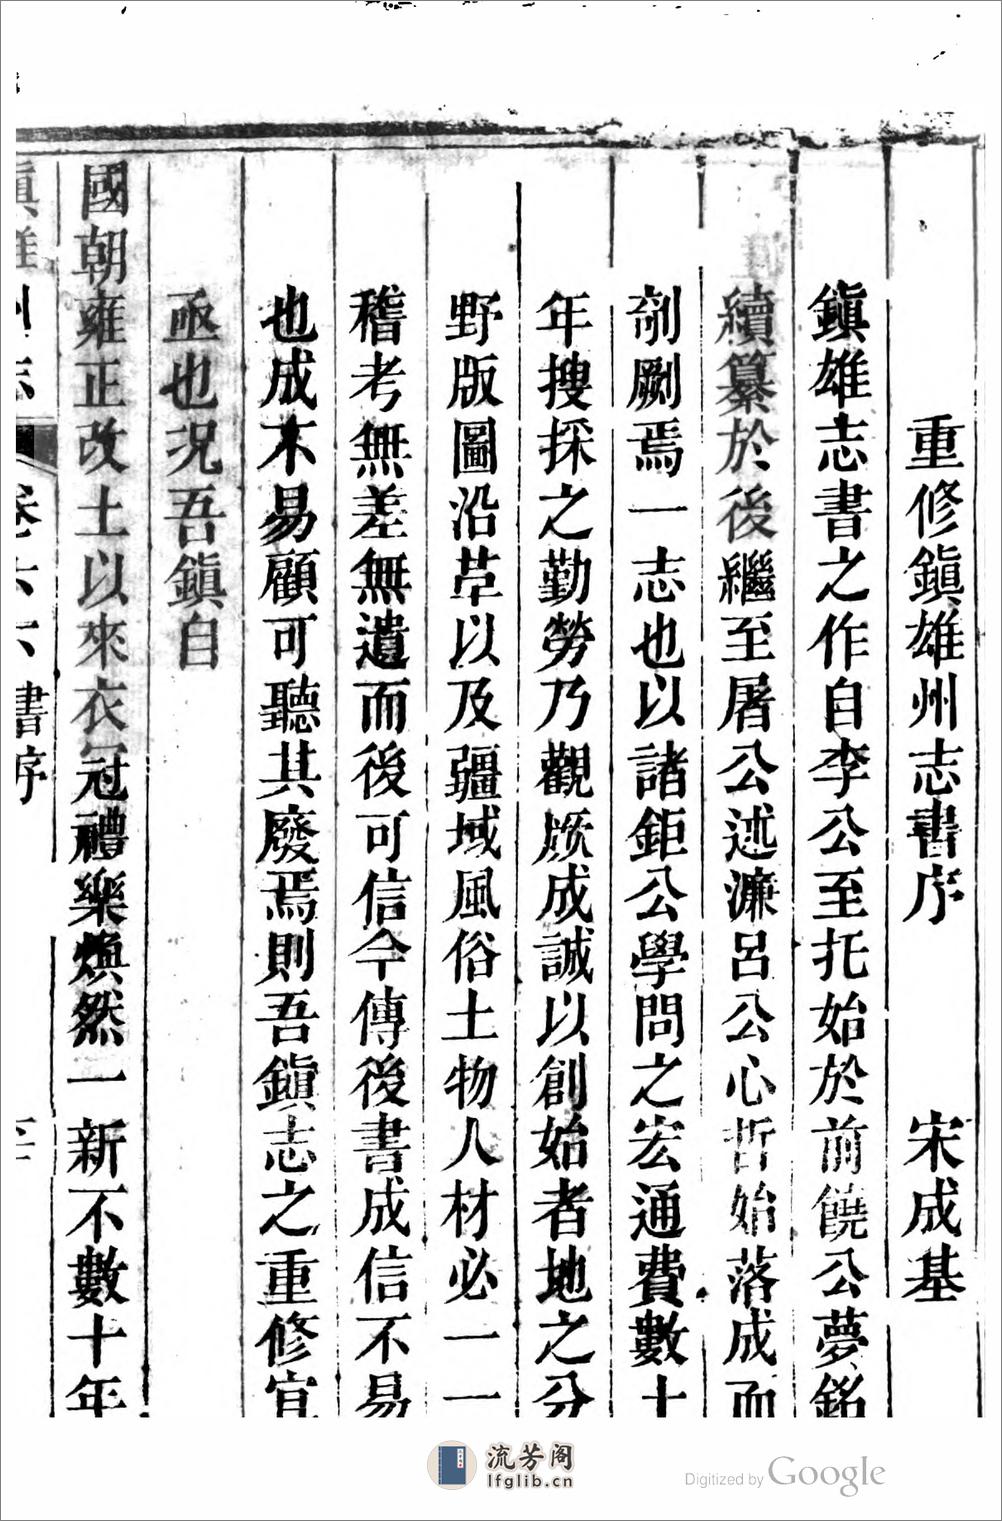 重修鎭雄州志書序 宋成基
鎭雄志書之作自李公至托始於前饒公夢銘
續纂於後繼至屠公述濂呂公心哲始落成而
剞劂焉一志也以諸鉅公學問之宏通費數十
年搜採之勤勞乃觀厥成誠以創始者地之分
野版圖沿革以及疆域風俗土物人材必一一
稽考無差無遺而後可信今傳後書成信不易
也成不易顧可聽其廢焉則吾鎭志之重修宜
亟也況吾鎭自
國朝雍正改土以來衣冠禮樂煥然一新不數十年
鎭雄州志 卷六 書序
流芳阁
lfglib.cn
Digitized by Google